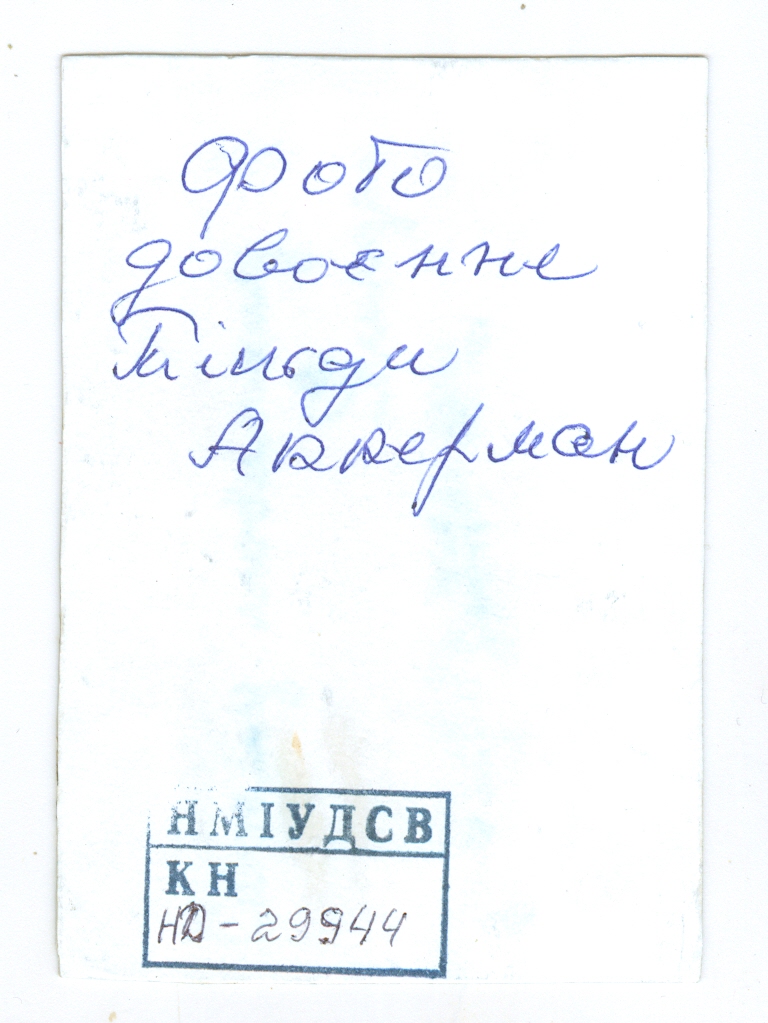 Фото
довоєнне
Тільди
Аккерман
НМІУДСВ
КН
НД-29944